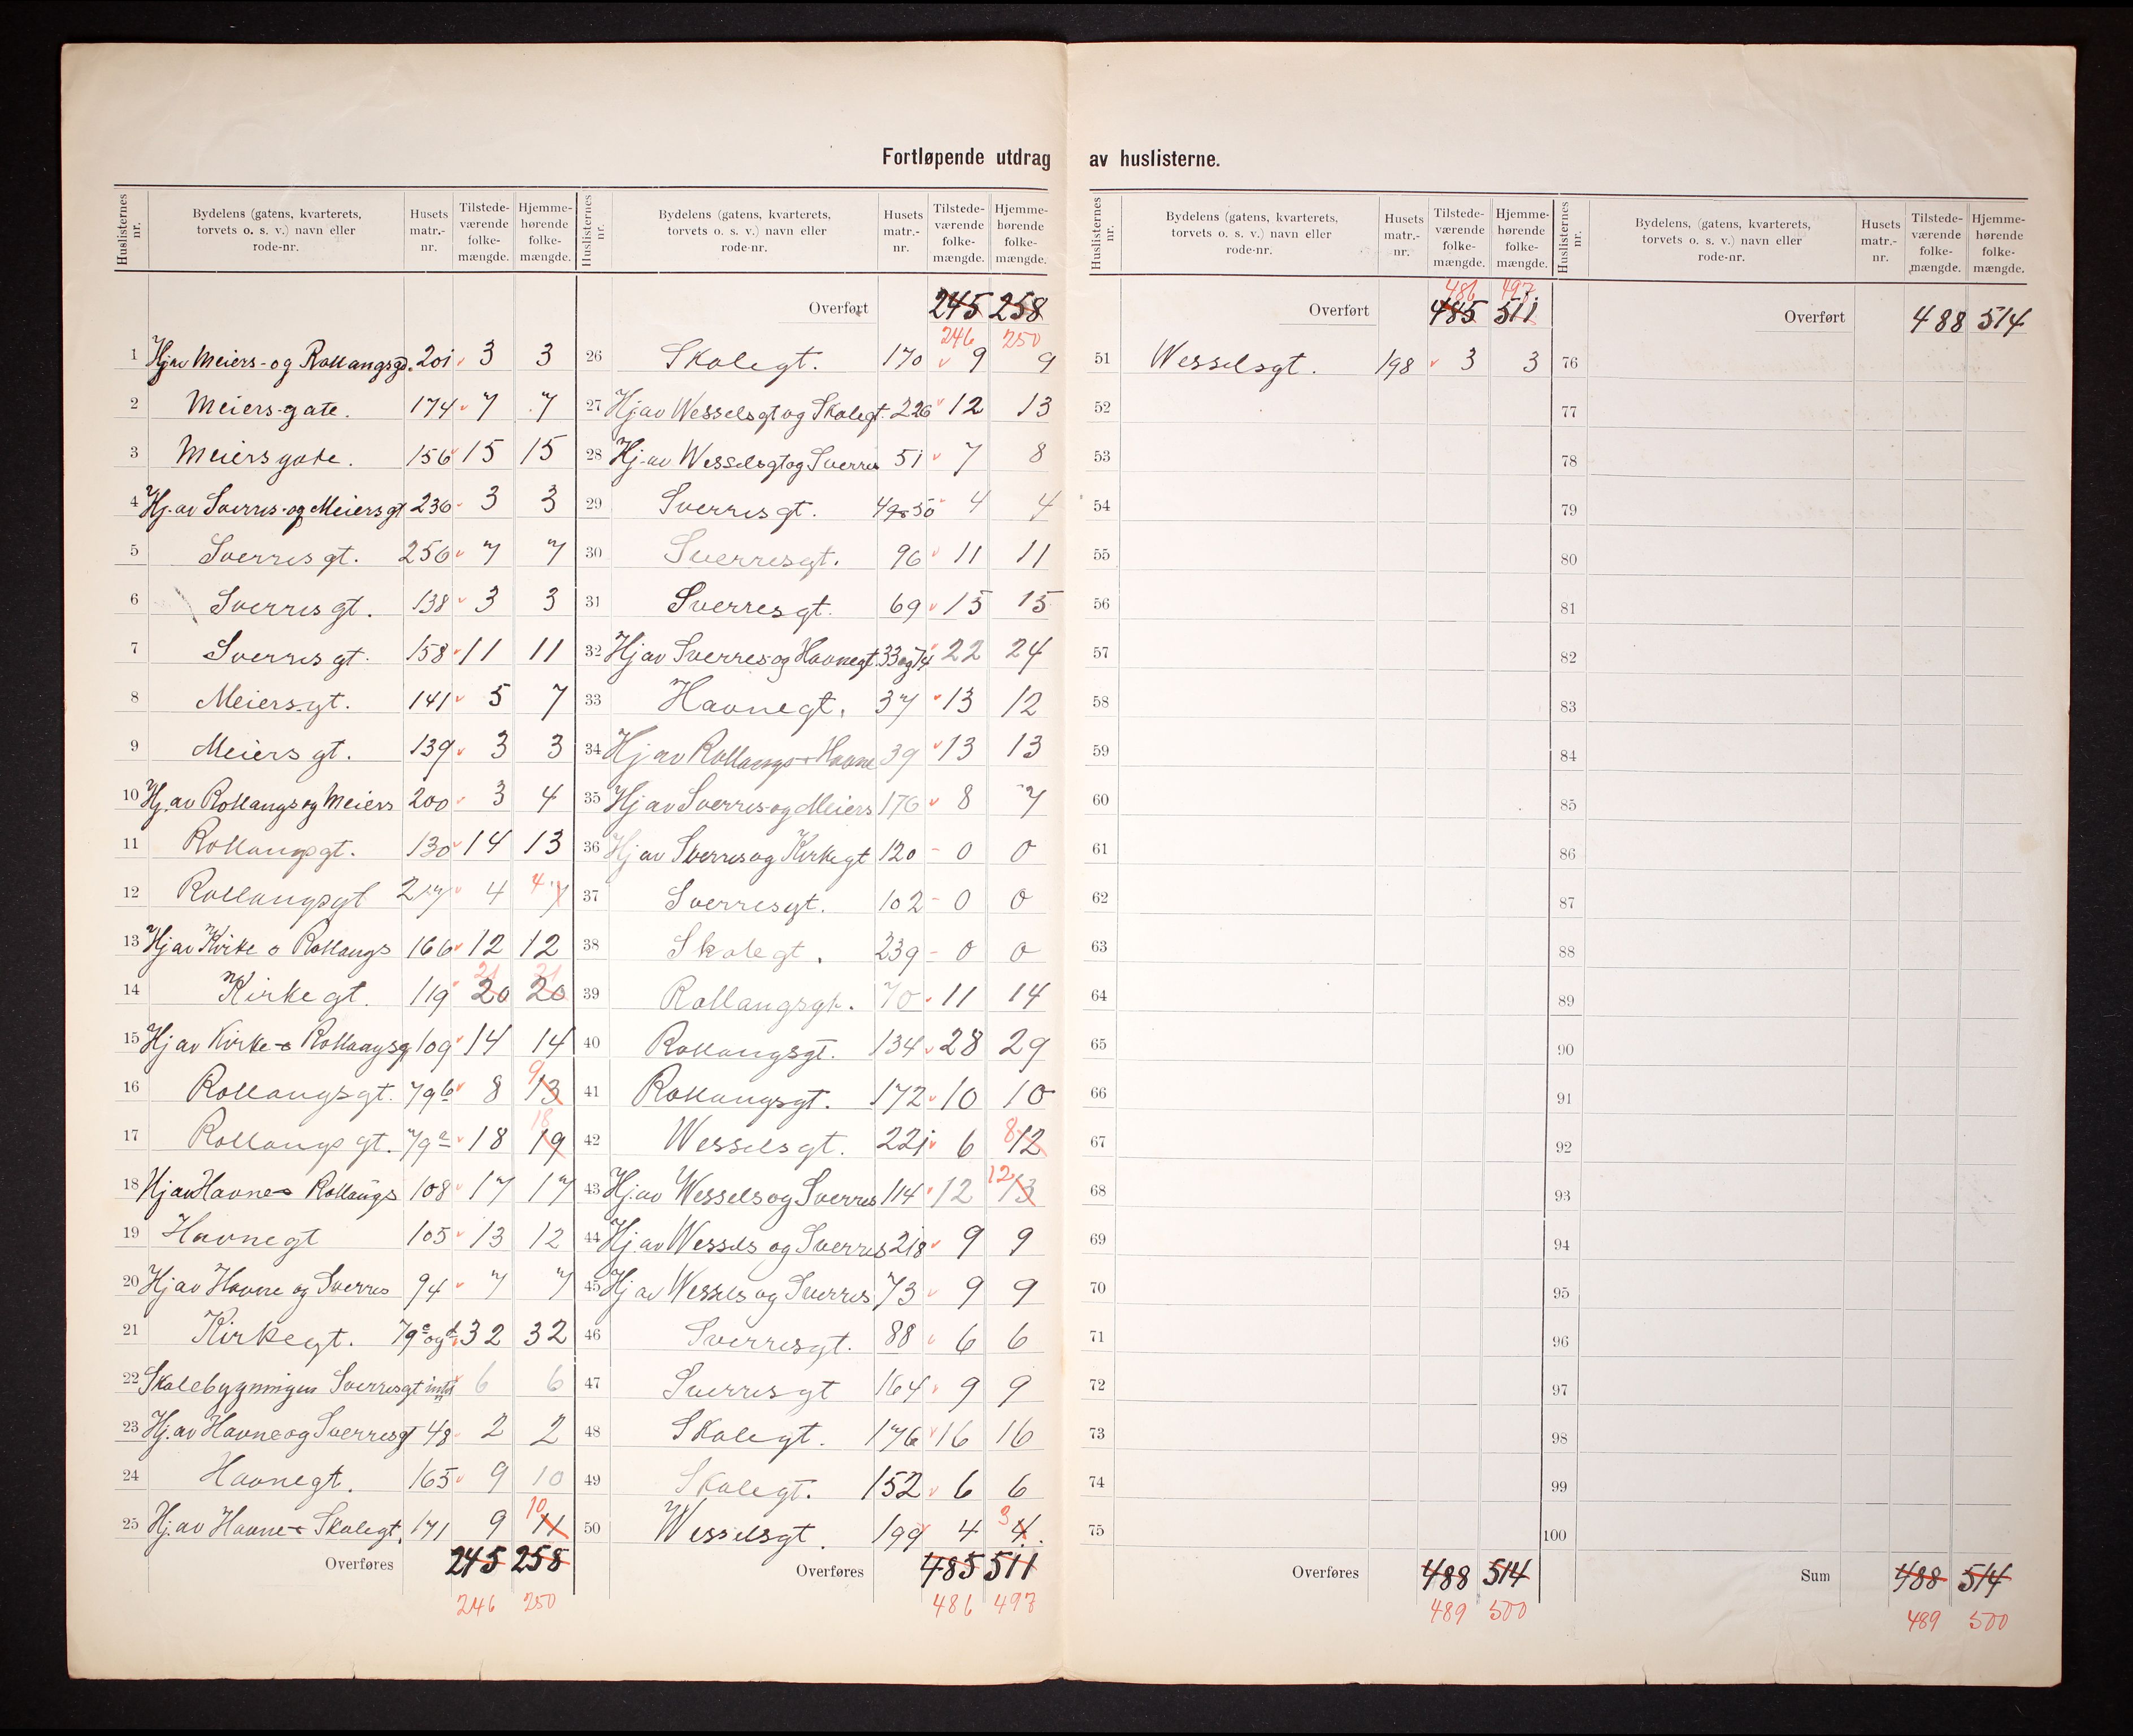 Fortløpende utdrag av huslisterne.
Huslisternes nr. | Bydelens (gatens, kvarterets, torvets o. s. v.) navn eller rode-nr. | Husets matr.-nr. | Tilstedeværende folkemængde. | Hjemmehørende folkemængde.
1 Hj av Meiers- og Rollangsgd. 201 3 3
2 Meiers-gate. 174 7 7
3 Meiersgate. 156 15 15
4 Hj. av Sverres- og Meiersgt 236 3 3
5 Sverresgt. 256 7 7
6 Sverresgt. 138 3 3
7 Sverresgt. 158 11 11
8 Meiersgt. 141 5 7
9 Meiersgt. 139 3 3
10 Hj. av Rollangs og Meiers 200 3 4
11 Rollangsgt. 130 14 13
12 Rollangsgt 217 4 4 7
13 Hj av Kirke o Rollangs 166 12 12
14 Kirkegt. 119 21 20 21 20
15 Hj av Kirke- o Rollangsg 109 14 14
16 Rollangsgt. 79b 8 9 13
17 Rollangsgt. 79a 18 18 19
18 Hj av Havne- o Rollangs 108 17 17
19 Havnegt 105 13 12
20 Hj av Havne og Sverres 94 7 7
21 Kirkegt. 79c og d 32 32
22 Skolebygningen Sverresgt intet 6 6
23 Hj. av Havne og Sverresgt 48 2 2
24 Havnegt. 165 9 10
25 Hj. av Havne- o Skolegt. 171 9 10 11
Overføres 245 258
246 250
Overført 245 258
246 250
26 Skolegt. 170 9 9
27 Hj av Wesselsgt og Skolegt. 226 12 13
28 Hj. av Wesselsgt og Sverres 51 7 8
29 Sverresgt. 49 o 50 4 4
30 Sverresgt. 96 11 11
31 Sverresgt. 69 15 15
32 Hj av Sverres og Havnegt. 33 og 74 22 24
33 Havnegt. 37 13 12
34 Hj av Rollangs- o Havne 39 13 13
35 Hj av Sverres- og Meiers 176 8 7
36 Hj av Sverres og Kirkegt 120 - 0 0
37 Sverresgt. 102 - 0 0
38 Skolegt. 239 - 0 0
39 Rollangsgt. 70 11 14
40 Rollangsgt. 134 28 29
41 Rollangsgt. 172 10 10
42 Wesselsgt. 221 6 8 12
43 Hj. av Wessels og Sverres 114 12 12 13
44 Hj. av Wessels og Sverres 218 9 9
45 Hj av Wessels og Sverres 73 9 9
46 Sverresgt. 88 6 6
47 Sverresgt 164 9 9
48 Skolegt. 176 16 16
49 Skolegt. 152 6 6
50 Wesselsgt. 199 4 3 4.
Overføres 485 511
486 497
486 497
Overført 485 511
51 Wesselsgt. 198 3 3
52
53
54
55
56
57
58
59
60
61
62
63
64
65
66
67
68
69
70
71
72
73
74
75
Overføres 488 514
489 500
Overført 488 514
76
77
78
79
80
81
82
83
84
85
86
87
88
89
90
91
92
93
94
95
96
97
98
99
100
Sum 488 514
489 500